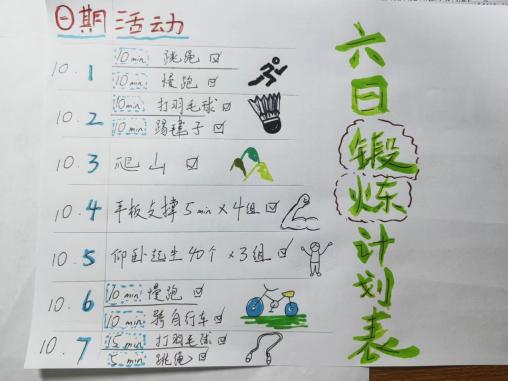 日期 活动
10.1 10min 跳绳
10min 慢跑
10.2 10min 打羽毛球
10min 踢毽子
10.3 爬山
10.4 平板支撑5min×4组
10.5 仰卧起坐40个×3组
10.6 10min 慢跑
10min 骑自行车
10.7 15min 打羽毛球
5min 跳绳
六日锻炼计划表